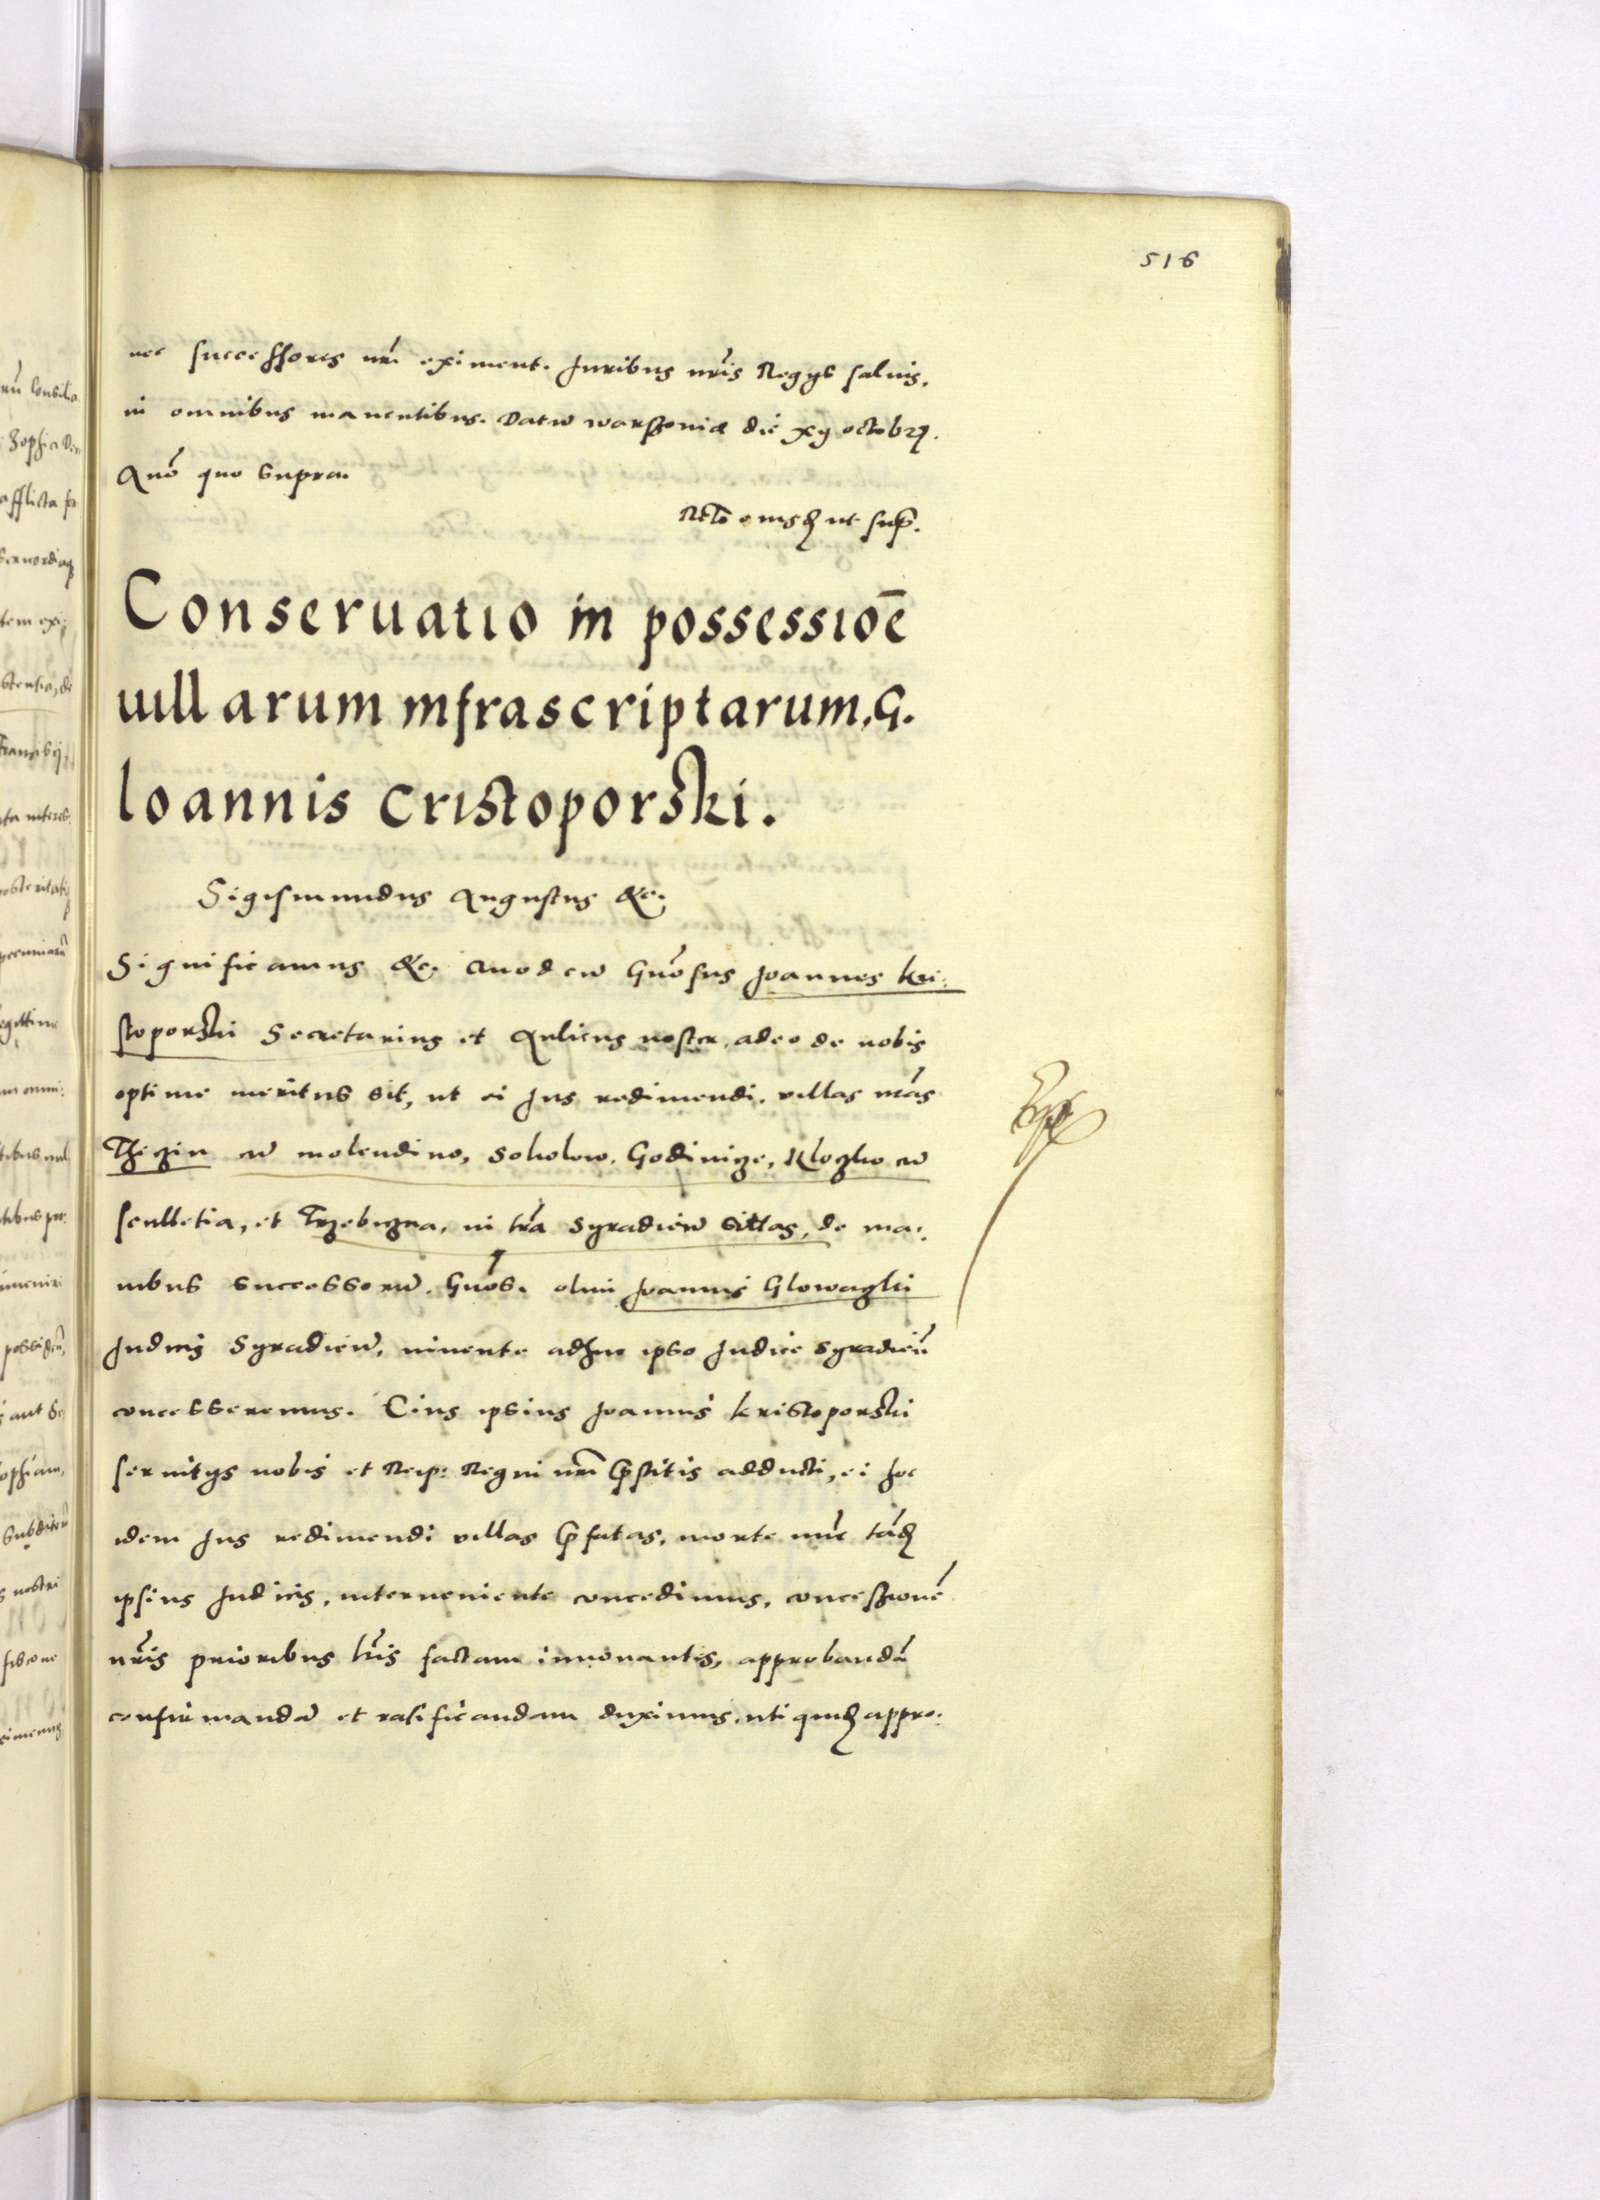 516
nec successores nr̃i eximent. Juribus nr̃is Regys saluis,
in omnibus manentibus. Datũ warssoviæ die xij octobrꝭ.
Anõ quo supra.
Relõ eiusdẽ ut supr̃.
Conseruatio in possessiõe
uillarum infrascriptarum, G.
Ioannis Cristoporski.
Sigismundus Augustus &c.
Significamus &c. Quod cũ Gñosus Joannes Kri-
stoporski Secretarius et Aulicus noster, adeo de nobis
optime meritus sit, ut ei Jus redimendi villas nr̃as
cũ molendino, Sokolow, Godinicze, Kloczko cũ
scultetia, et in tr̃a Syradieñ sittas, de ma-
nibus successorũ Gños. olim Joannis Glowaczki
Judicis Syradieñ, vivente adhuc ipso Judice Syradieñ
concesseremus. Eius ipsius Joannis Kristoporski
seruitys nobis et Reip: Regni nr̃i p̃stitis adducti, ei hoc
idem Jus redimendi villas p̃fatas, morte nũc tãdẽ
ipsius Judicis, interueniente concedimus, concessionẽ
nr̃is prioribus lr̃is factam innouantes, approbandã
confirmandã et ratificandam duximus, uti quidẽ appro-